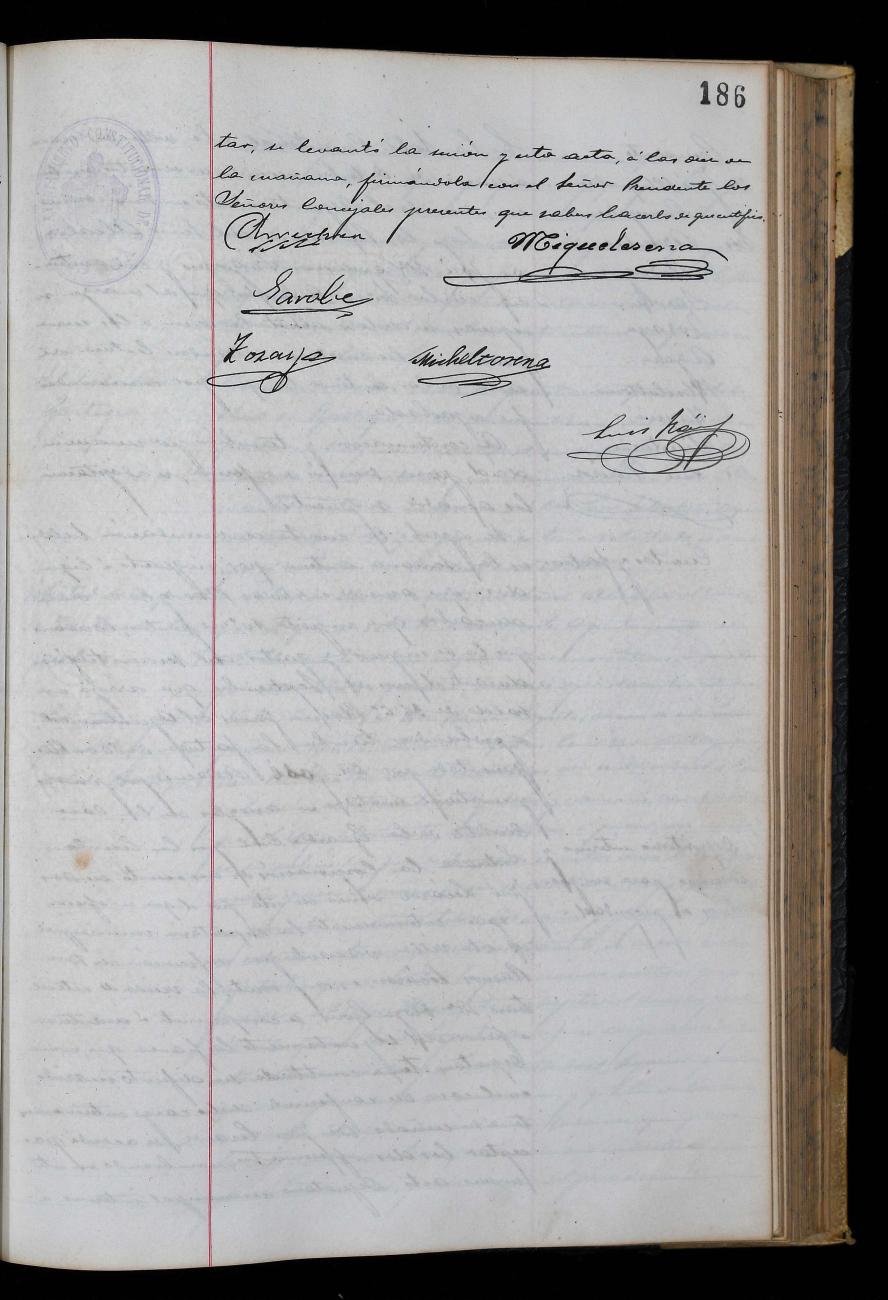 186
tar, se levantó la sesión y esta acta, á las diez de
la mañana, firmándola con el Señor Presidente los
Señores Concejales presentes que saben hacerlo de que certifico.
Miquelerena
Garobe
Zozaya Michelcorena
Luis
CONSTITUCIONAL DE